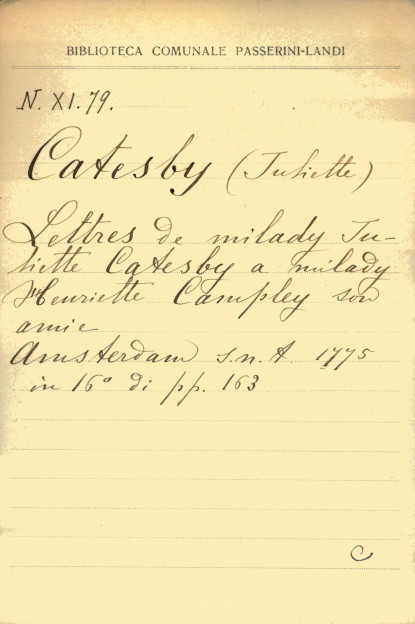 BIBLIOTECA COMUNALE PASSERINI-LANDI
N. XI. 79.
Catesby (Juliette)
Lettres de milady Ju-
liette Catesby a milady
Henriette Campley son
amie
Amsterdam s.n.t. 1775
in 16° di pp. 163
C